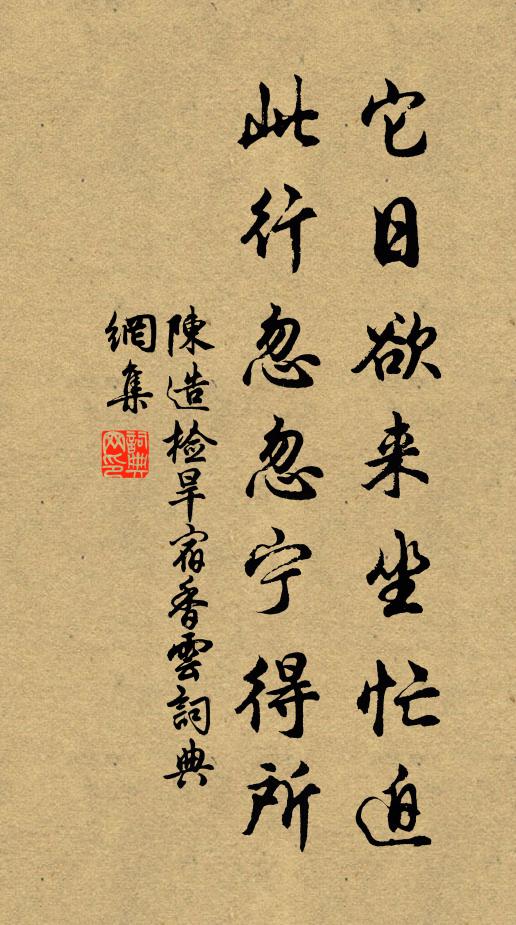 它日欲来坐忙迫
此行忽忽宁得所
陳造检旱宿香雲詞典
網集
詞典网印